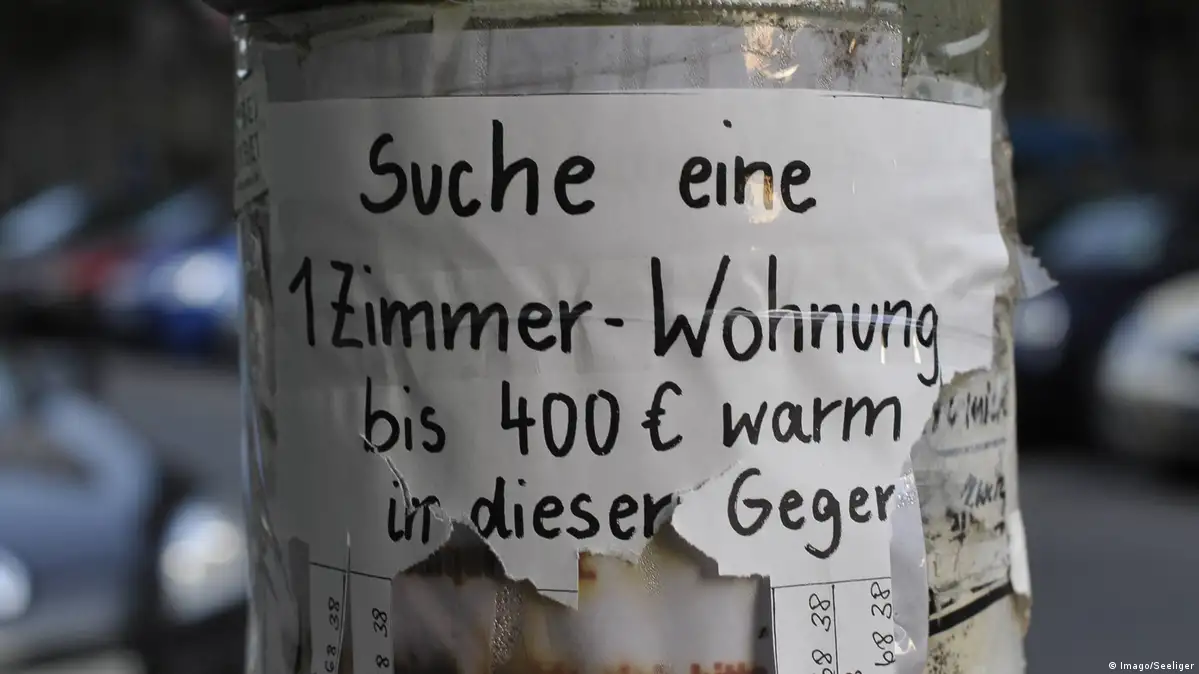 Suche eine
1 Zimmer - Wohnung
bis 400 € warm
in dieser Geger
68 38
8 38
68 38
68 38
© Imago/Seeliger